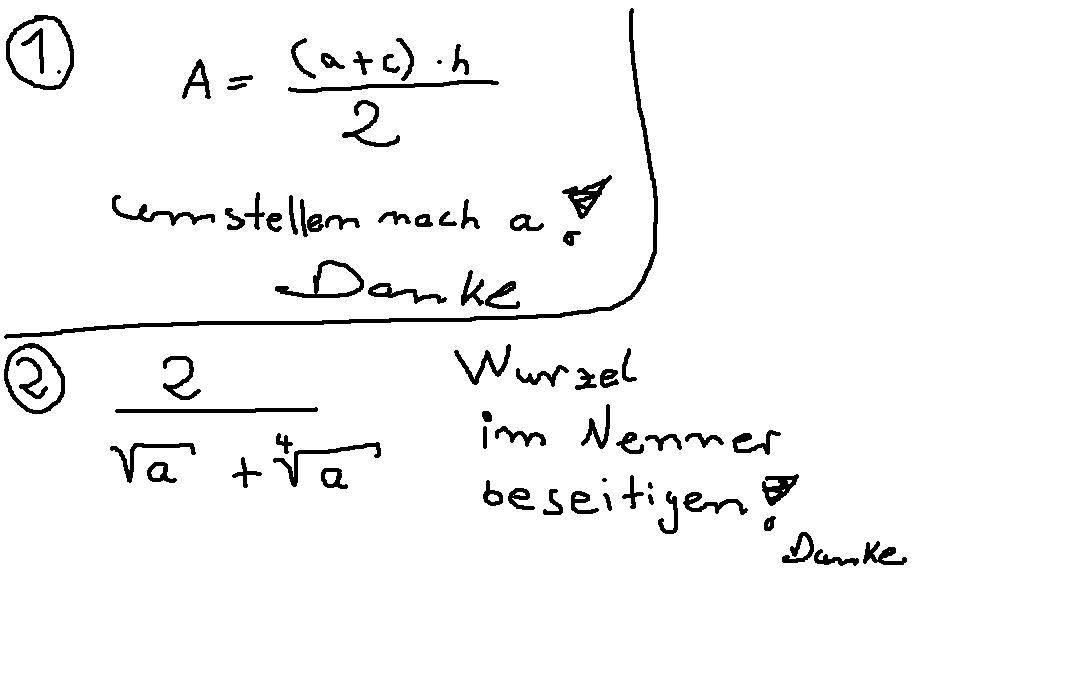 1.
A = (a+c) · h / 2
umstellen nach a!
Danke
2
2 / √a + ⁴√a
Wurzel
im Nenner
beseitigen!
Danke